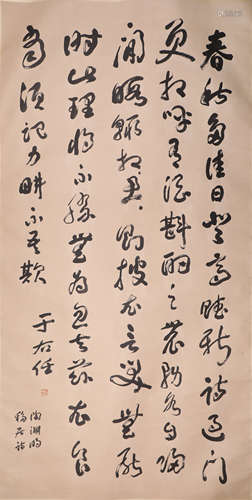 春秋多佳日登高賦新詩過門
更相呼有酒斟酌之農務各自歸
閒暇輒相思則披衣言笑無厭
時此理將不勝無為忽去茲衣食
當須記力畊不吾欺
于右任
陶淵明
移居詩